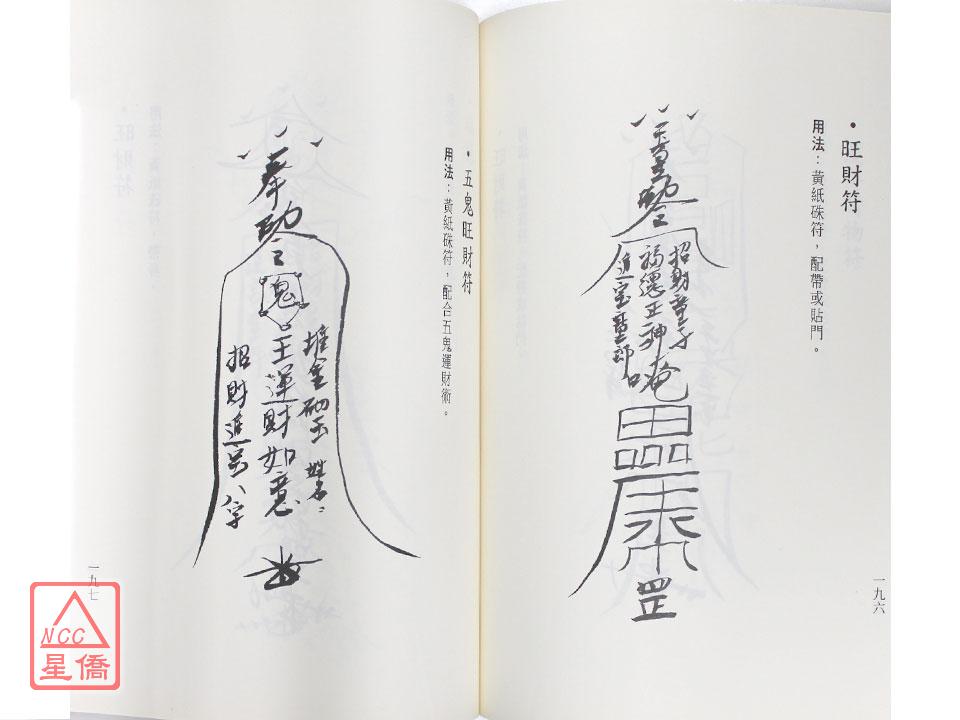 ・旺財符
用法：黃紙硃符，配帶或貼門。
招財童子
福德正神
進宝童郎
唵
罡
一九六
・五鬼旺財符
用法：黃紙硃符，配合五鬼運財術。
奉勅令
堆金砌玉 姓名
鬼王運財如意
招財進宝 八字
一九七
NCC
星僑